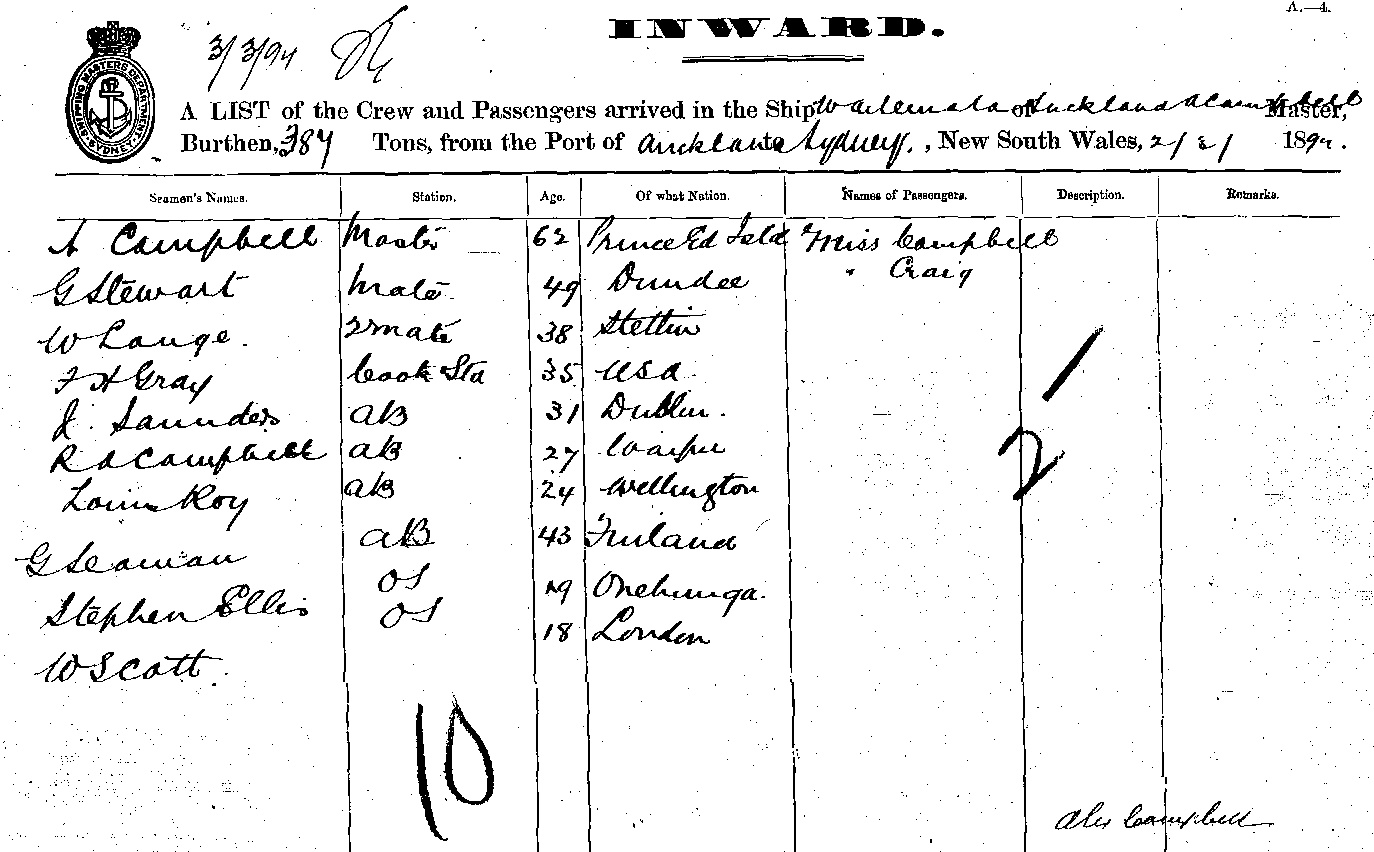 A.—4.
INWARD.
3/3/94
SHIPPING MASTERS DEPARTMENT SYDNEY
A LIST of the Crew and Passengers arrived in the Ship Waitemata of Auckland A Campbell Master,
Burthen, 387 Tons, from the Port of Auckland to Sydney, New South Wales, 2/3/ 189
Seamen's Names. Station. Age. Of what Nation. Names of Passengers. Description. Remarks.
A Campbell Master 62 Prince Ed Isld Miss Campbell
" Craig
G Stewart Mate 49 Dundee
W Lange. 2 mate 38 Stettin
F H Gray Cook Std 35 USA
J. Saunders AB 31 Dublin.
R A Campbell AB 27 Waipu
Louis Roy AB 24 Wellington
G Seaman AB 43 Finland
Stephen Ellis OS 19 Onehunga.
W Scott OS 18 London
1
2
10
Alex Campbell